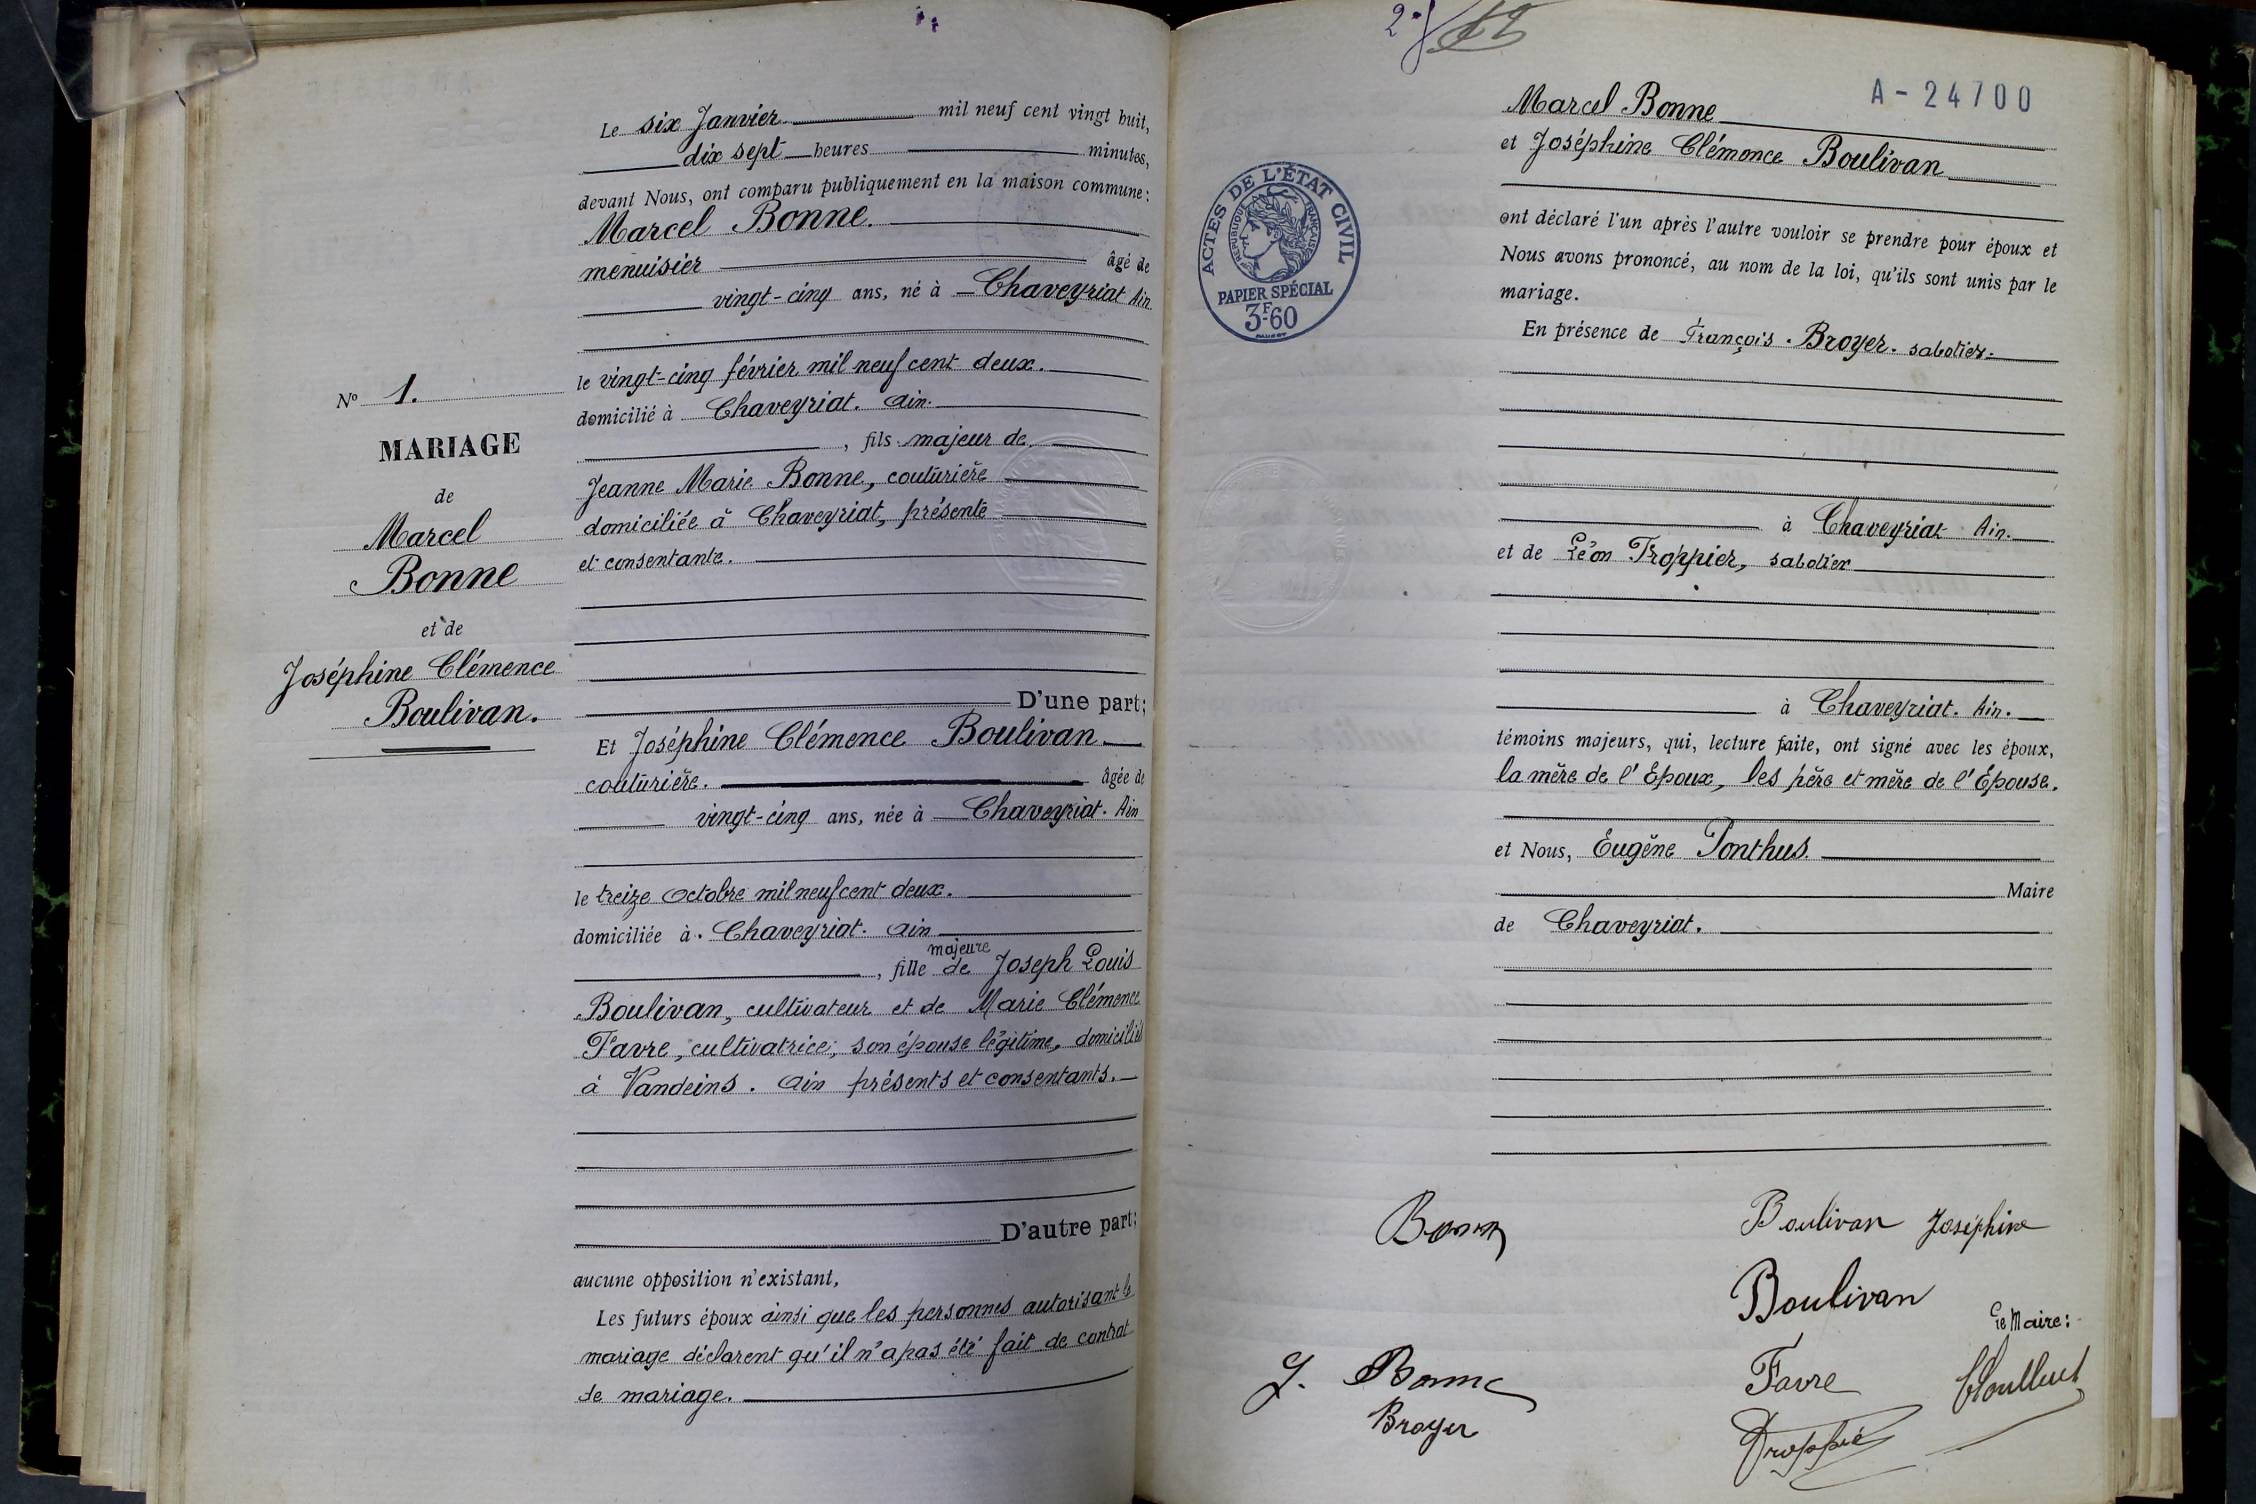 Le six Janvier mil neuf cent vingt huit,
dix sept heures minutes,
devant Nous, ont comparu publiquement en la maison commune:
Marcel Bonne.
menuisier âgé de
vingt-cinq ans, né à Chaveyriat Ain
le vingt-cinq février mil neuf cent deux.
domicilié à Chaveyriat. Ain.
, fils majeur de
Jeanne Marie Bonne, couturière
domiciliée à Chaveyriat, présente
et consentante.
D'une part;
Et Joséphine Clémence Boulivan
couturière. âgée de
vingt-cinq ans, née à Chaveyriat. Ain
le treize Octobre mil neuf cent deux.
domiciliée à. Chaveyriat. Ain
majeure
, fille de Joseph Louis
Boulivan, cultivateur et de Marie Clémence
Favre, cultivatrice, son épouse légitime, domiciliés
à Vandeins. Ain présents et consentants.
D'autre part;
aucune opposition n'existant,
Les futurs époux ainsi que les personnes autorisant le
mariage déclarent qu'il n'a pas été fait de contrat
de mariage.
No 1.
MARIAGE
de
Marcel
Bonne
et de
Joséphine Clémence
Boulivan.
A-24700
Marcel Bonne
et Joséphine Clémence Boulivan
ont déclaré l'un après l'autre vouloir se prendre pour époux et
Nous avons prononcé, au nom de la loi, qu'ils sont unis par le
mariage.
En présence de François. Broyer. sabotier.
à Chaveyriat Ain.
et de Léon Troppier, sabotier
à Chaveyriat. Ain.
témoins majeurs, qui, lecture faite, ont signé avec les époux,
la mère de l'Epoux, les père et mère de l'Épouse.
et Nous, Eugène Ponthus.
Maire
de Chaveyriat.
ACTES DE L'ÉTAT CIVIL
RÉPUBLIQUE FRANÇAISE
PAPIER SPÉCIAL
3F-60
Boulivan Joséphine
Boulivan
Le Maire:
J. Bonne
Favre
Broyer